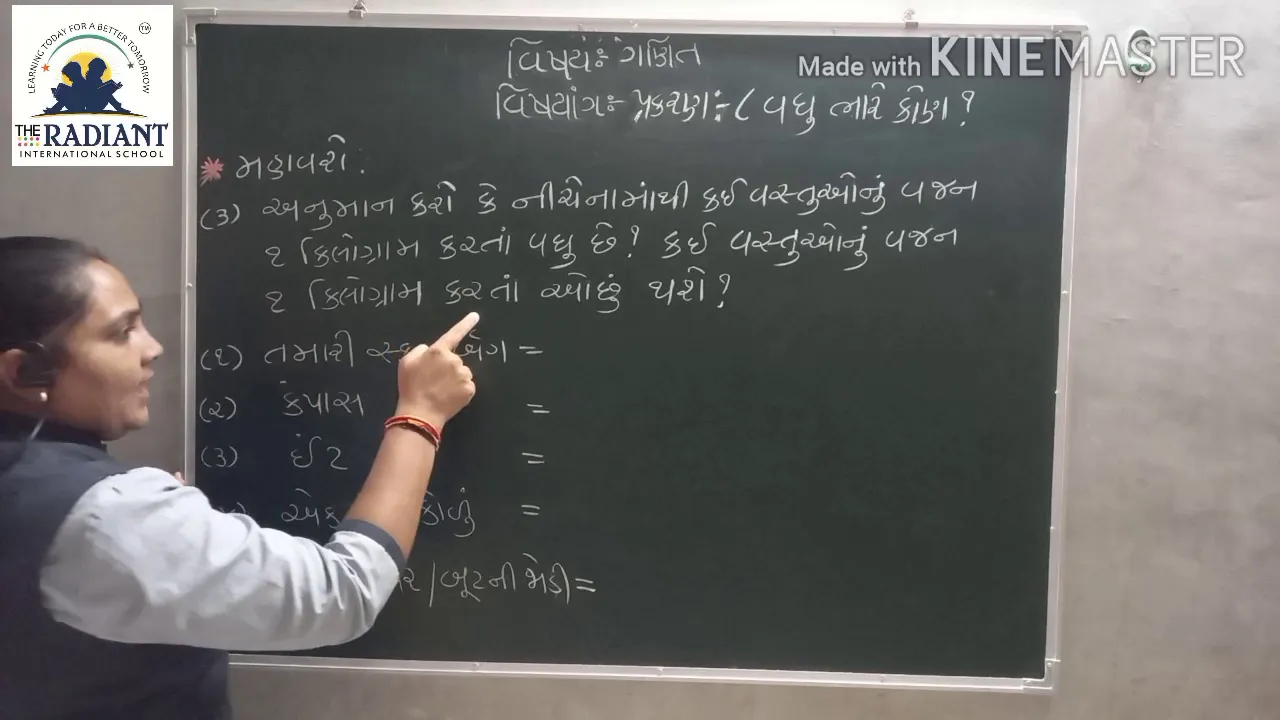 LEARNING TODAY FOR A BETTER TOMORROW
TM
THE RADIANT
INTERNATIONAL SCHOOL
Made with KINEMASTER
વિષય:- ગણિત
વિષયાંગ:- પ્રકરણ:- ૮ વધુ ભારે કોણ ?
* મહાવરો :
(૩) અનુમાન કરો કે નીચેનામાંથી કઈ વસ્તુઓનું વજન
૧ કિલોગ્રામ કરતાં વધુ છે? કઈ વસ્તુઓનું વજન
૧ કિલોગ્રામ કરતાં ઓછું થશે?
(૧) તમારી =
(૨) કંપાસ =
(૩) ઈંટ =
કોળું =
/બૂટની જોડી =